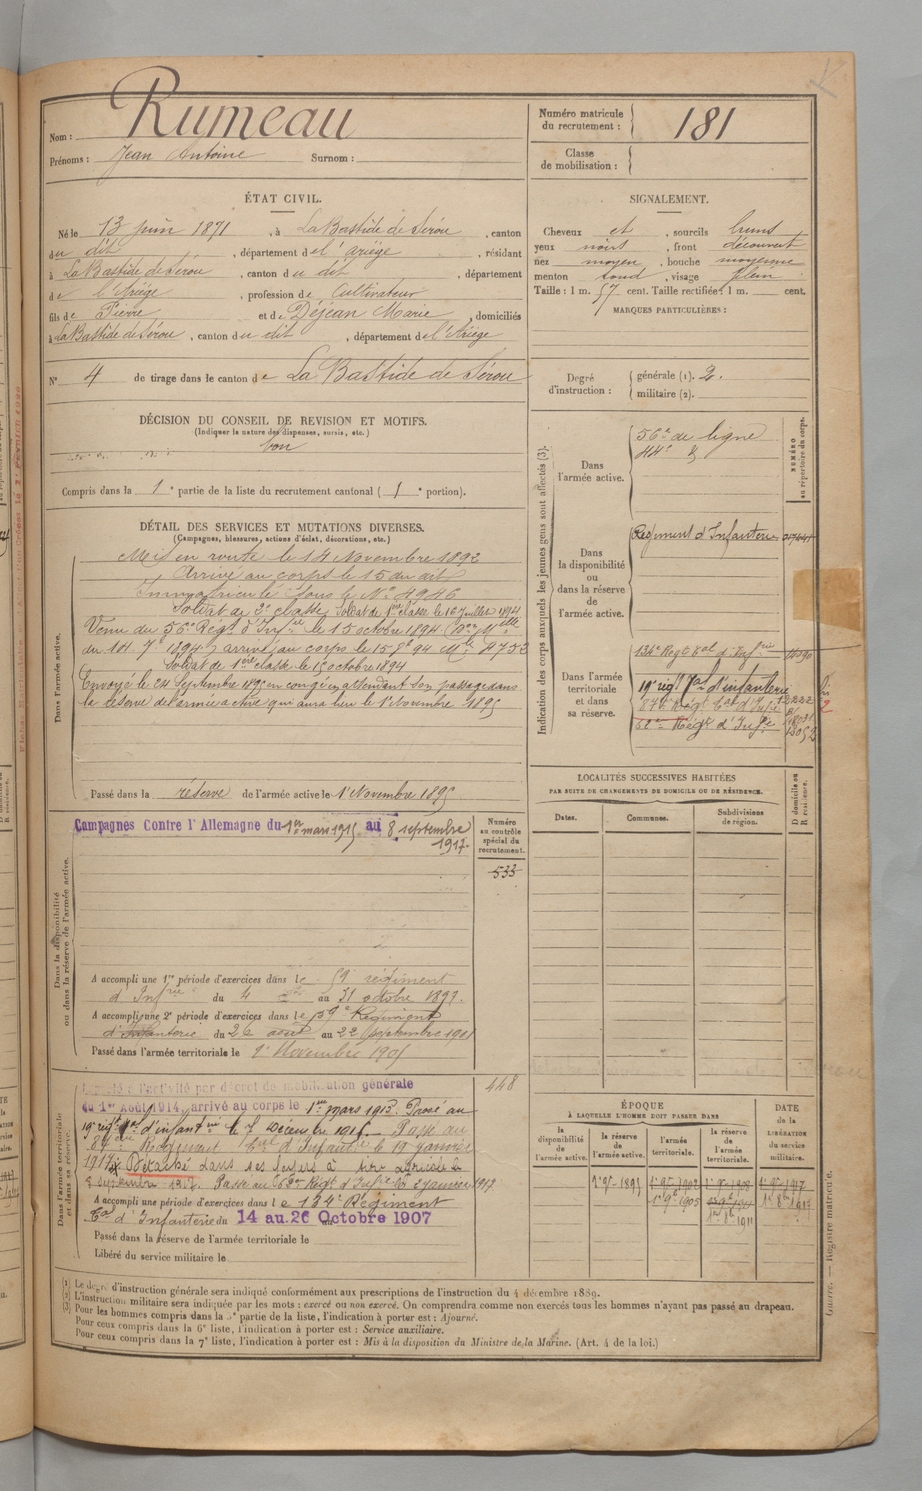 Nom : Rumeau
Prénoms : Jean Antoine Surnom :
Numéro matricule du recrutement : 181
Classe de mobilisation :
ÉTAT CIVIL.
Né le 13 juin 1871, à La Bastide de Sérou, canton
du dit, département de l'Ariége, résidant
à La Bastide de Sérou, canton du dit, département
de l'Ariége, profession de Cultivateur
fils de Pierre et de Déjean Marie, domiciliés
à La Bastide de Sérou, canton du dit, département de l'Ariége
N° 4 de tirage dans le canton de La Bastide de Sérou
SIGNALEMENT.
Cheveux et, sourcils bruns
yeux noirs, front découvert
nez moyen, bouche moyenne
menton rond, visage plein
Taille : 1 m. 57 cent. Taille rectifiée : 1 m. cent.
MARQUES PARTICULIÈRES :
Degré d'instruction : générale (1). 2.
militaire (2).
DÉCISION DU CONSEIL DE REVISION ET MOTIFS.
(Indiquer la nature des dispenses, sursis, etc.)
bon
Compris dans la 1e partie de la liste du recrutement cantonal ( 1e portion).
DÉTAIL DES SERVICES ET MUTATIONS DIVERSES.
(Campagnes, blessures, actions d'éclat, décorations, etc.)
Dans l'armée active.
Mis en route le 14 Novembre 1892
Arrivé au corps le 15 du dit
Immatriculé sous le N° 4946
Soldat de 2e classe Soldat de 1ère classe le 16 Juillet 1894
Venu du 56e Régt d'Infie le 15 octobre 1894
arrivé au corps le 15 94 Mle 4753
Soldat de 1ère classe le 15 octobre 1894
Envoyé le 24 Septembre 1895 en congé en attendant son passage dans
la réserve de l'armée active qui aura lieu le 1er Novembre 1895
Passé dans la réserve de l'armée active le 1er Novembre 1895
Indication des corps auxquels les jeunes gens sont affectés (3).
NUMÉRO au répertoire du corps.
Dans l'armée active.
56e de ligne
44e
Dans la disponibilité ou dans la réserve de l'armée active.
Régiment d'Infanterie
Dans l'armée territoriale et dans sa réserve.
134e Regt tal d'Infrie
19e régt tal d'infanterie
87e Regt tal d'Infie
62e Régt d'Infie
Dans la disponibilité ou dans la réserve de l'armée active.
Campagnes Contre l'Allemagne du 1er mars 1915 au 8 septembre
1917.
Numéro au contrôle spécial du recrutement.
533
A accompli une 1re période d'exercices dans le 59 régiment
d'Infrie du 4 au 31 octobre 1897.
A accompli une 2e période d'exercices dans le 59e Régiment
d'Infanterie du 26 août au 22 septembre 1901
Passé dans l'armée territoriale le 1er Novembre 1905
LOCALITÉS SUCCESSIVES HABITÉES
PAR SUITE DE CHANGEMENTS DE DOMICILE OU DE RÉSIDENCE.
Dates. Communes. Subdivisions de région. D domicile ou R résidence.
Dans l'armée territoriale et dans sa réserve.
448
Rappelé à l'activité par décret de mobilisation générale
du 1er Août 1914, arrivé au corps le 1er mars 1915. Passé au
19e régt tal d'infantie le 7 Décembre 1915. Passé au
87eme Régiment tal d'Infanterie le 19 janvier
1917. Détaché dans ses foyers à titre agricole le
8 septembre 1917. Passé au 62e Regt d'Infie le 2 janvier 1917
A accompli une période d'exercices dans le 134e Régiment
Tal d'Infanterie du 14 au 26 Octobre 1907
Passé dans la réserve de l'armée territoriale le
Libéré du service militaire le
ÉPOQUE
À LAQUELLE L'HOMME DOIT PASSER DANS
la disponibilité de l'armée active. la réserve de l'armée active. l'armée territoriale. la réserve de l'armée territoriale.
DATE de la LIBÉRATION du service militaire.
1er 9bre 1895 1er 9bre 1902 1er 9bre 1908 1er 9bre 1917
1er 9bre 1905
(1) Le degré d'instruction générale sera indiqué conformément aux prescriptions de l'instruction du 4 décembre 1889.
(2) L'instruction militaire sera indiquée par les mots : exercé ou non exercé. On comprendra comme non exercés tous les hommes n'ayant pas passé au drapeau.
(3) Pour les hommes compris dans la 5e partie de la liste, l'indication à porter est : Ajourné.
Pour ceux compris dans la 6e liste, l'indication à porter est : Service auxiliaire.
Pour ceux compris dans la 7e liste, l'indication à porter est : Mis à la disposition du Ministre de la Marine. (Art. 4 de la loi.)
Guerre. — Registre matricule.